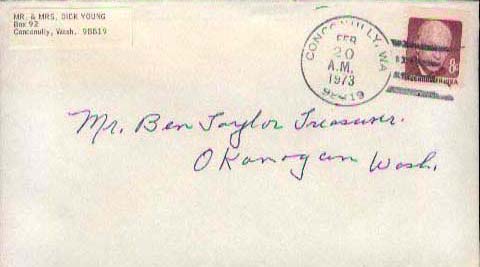 MR. & MRS. DICK YOUNG
Box 92
Conconully, Wash. 98819
CONCONULLY, WA
FEB
20
A.M.
1973
98819
8¢
Mr. Ben Taylor Treasurer.
Okanogan Wash.